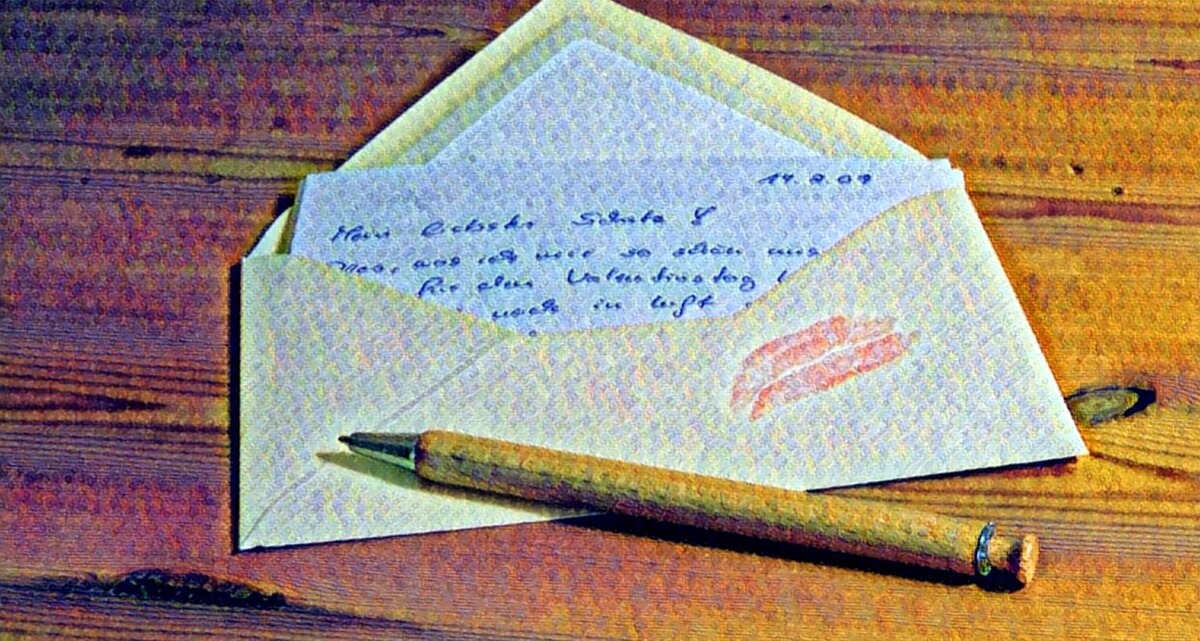 14.2.09
Mein liebster Schatz
was ich mir so schön
für den Valentinstag
noch in